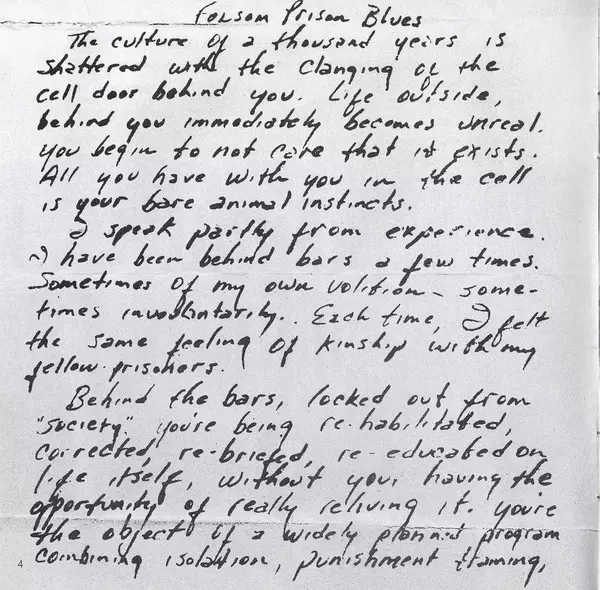 Folsom Prison Blues
The culture of a thousand years is
shattered with the clanging of the
cell door behind you. Life outside,
behind you immediately becomes unreal.
you begin to not care that it exists.
All you have with you in the cell
is your bare animal instincts.
I speak partly from experience.
I have been behind bars a few times.
Sometimes of my own volition - some-
times involuntarily. Each time, I felt
the same feeling of kinship with my
fellow prisoners.
Behind the bars, locked out from
"society" you're being re-habilitated,
corrected, re-briefed, re-educated on
life itself, without you having the
opportunity of really reliving it. you're
the object of a widely planned program
combining isolation, punishment training,
4